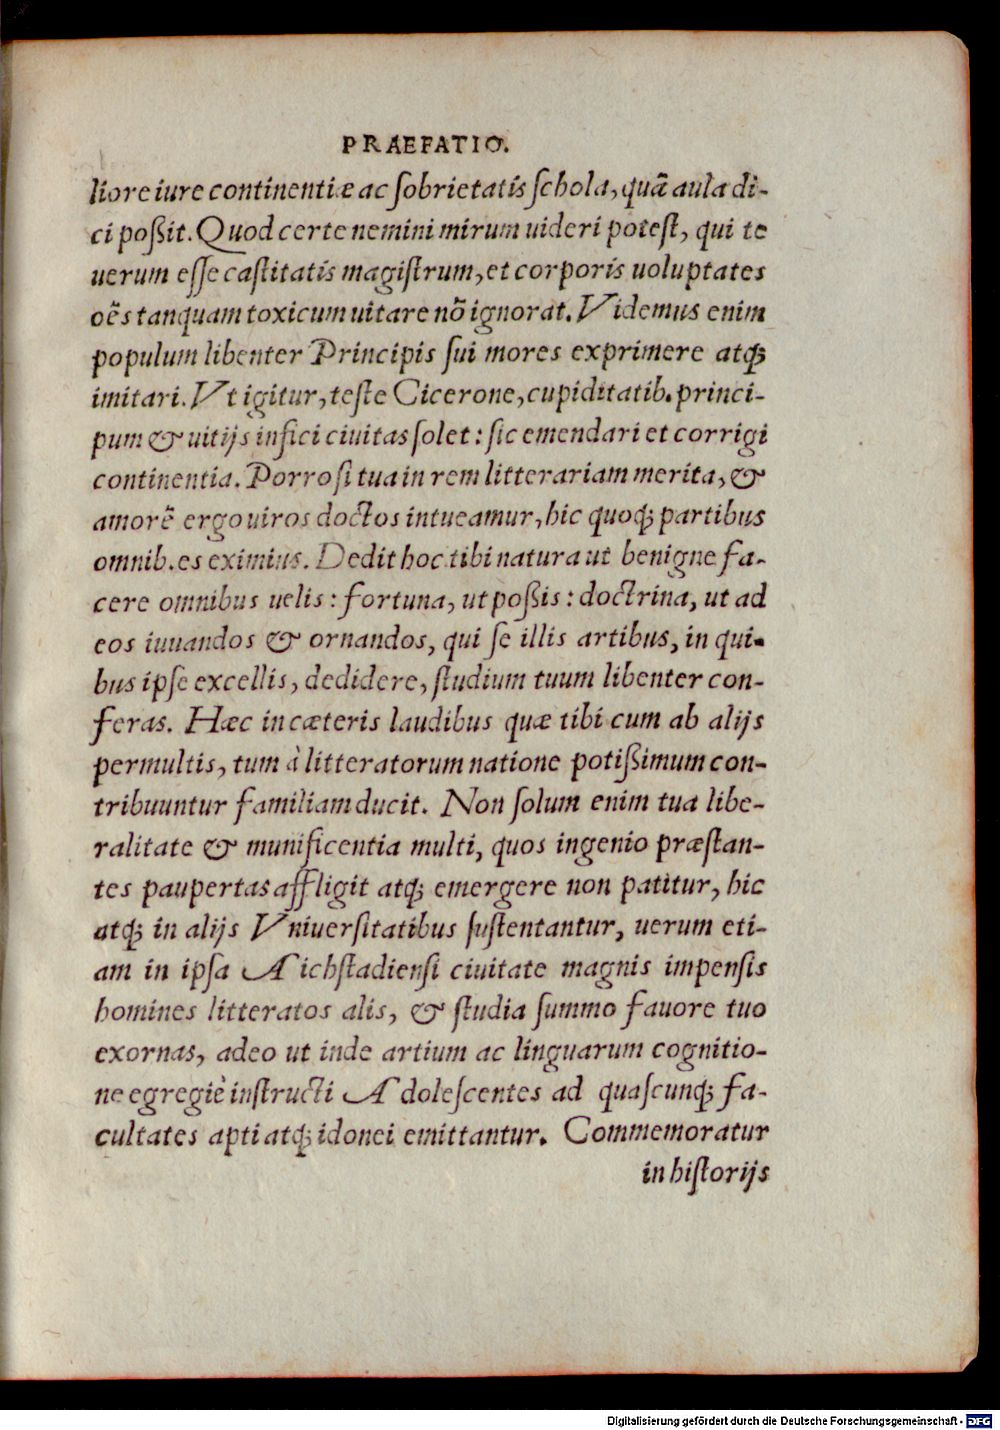 PRAEFATIO.
liore iure continentiæ ac ſobrietatis ſchola, quã aula di-
ci poßit. Quod certe nemini mirum uideri poteſt, qui te
uerum eſſe caſtitatis magiſtrum, et corporis uoluptates
oẽs tanquam toxicum uitare nõ ignorat. Videmus enim
populum libenter Principis ſui mores exprimere atq;
imitari. Vt igitur, teſte Cicerone, cupiditatib. princi-
pum & uitijs infici ciuitas ſolet: ſic emendari et corrigi
continentia. Porro ſi tua in rem litterariam merita, &
amorẽ ergo uiros doctos intueamur, hic quoq; partibus
omnib. es eximius. Dedit hoc tibi natura ut benigne fa-
cere omnibus uelis: fortuna, ut poßis: doctrina, ut ad
eos iuuandos & ornandos, qui ſe illis artibus, in qui-
bus ipſe excellis, dedidere, ſtudium tuum libenter con-
feras. Hæc in cæteris laudibus quæ tibi cum ab alijs
permultis, tum à litteratorum natione potißimum con-
tribuuntur familiam ducit. Non ſolum enim tua libe-
ralitate & munificentia multi, quos ingenio præſtan-
tes paupertas affligit atq; emergere non patitur, hic
atq; in alijs Vniuerſitatibus ſuſtentantur, uerum eti-
am in ipſa Aichſtadienſi ciuitate magnis impenſis
homines litteratos alis, & ſtudia ſummo fauore tuo
exornas, adeo ut inde artium ac linguarum cognitio-
ne egregiè inſtructi Adoleſcentes ad quaſcunq; fa-
cultates apti atq; idonei emittantur. Commemoratur
in hiſtorijs
Digitalisierung gefördert durch die Deutsche Forschungsgemeinschaft - DFG